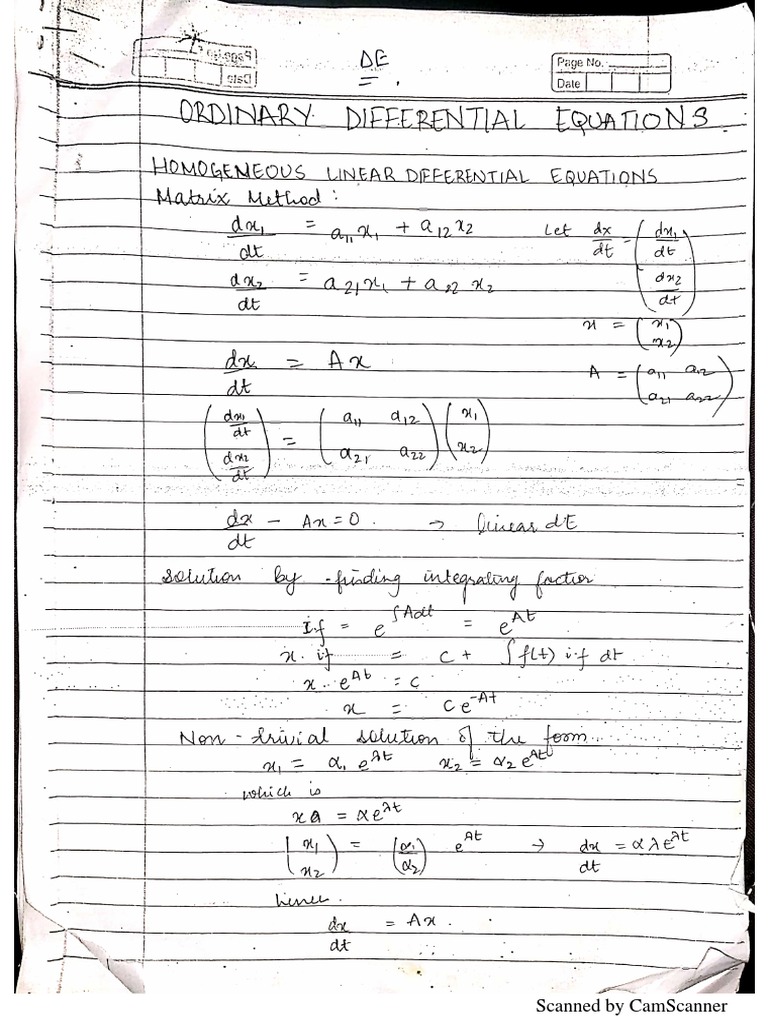 ΔE
Page No.
Date
ORDINARY DIFFERENTIAL EQUATIONS
HOMOGENEOUS LINEAR DIFFERENTIAL EQUATIONS
Matrix Method :
dx₁/dt = a₁₁x₁ + a₁₂x₂ Let dx/dt = (dx₁/dt dx₂/dt)
dx₂/dt = a₂₁x₁ + a₂₂x₂
x = (x₁ x₂)
dx/dt = Ax A = (a₁₁ a₁₂ a₂₁ a₂₂)
(dx₁/dt dx₂/dt) = (a₁₁ a₁₂ a₂₁ a₂₂)(x₁ x₂)
dx/dt - Ax = 0. → linear dE
Solution by finding integrating factor
I.f = e^∫Adt = e^At
x. if = c + ∫f(t) i.f dt
x. e^At = c
x = ce^-At
Non-trivial solution of the form
x₁ = α₁e^λt x₂ = α₂e^λt
which is
x = αe^λt
(x₁ x₂) = (α₁ α₂) e^λt → dx/dt = αλe^λt
hence
dx/dt = Ax.
Scanned by CamScanner